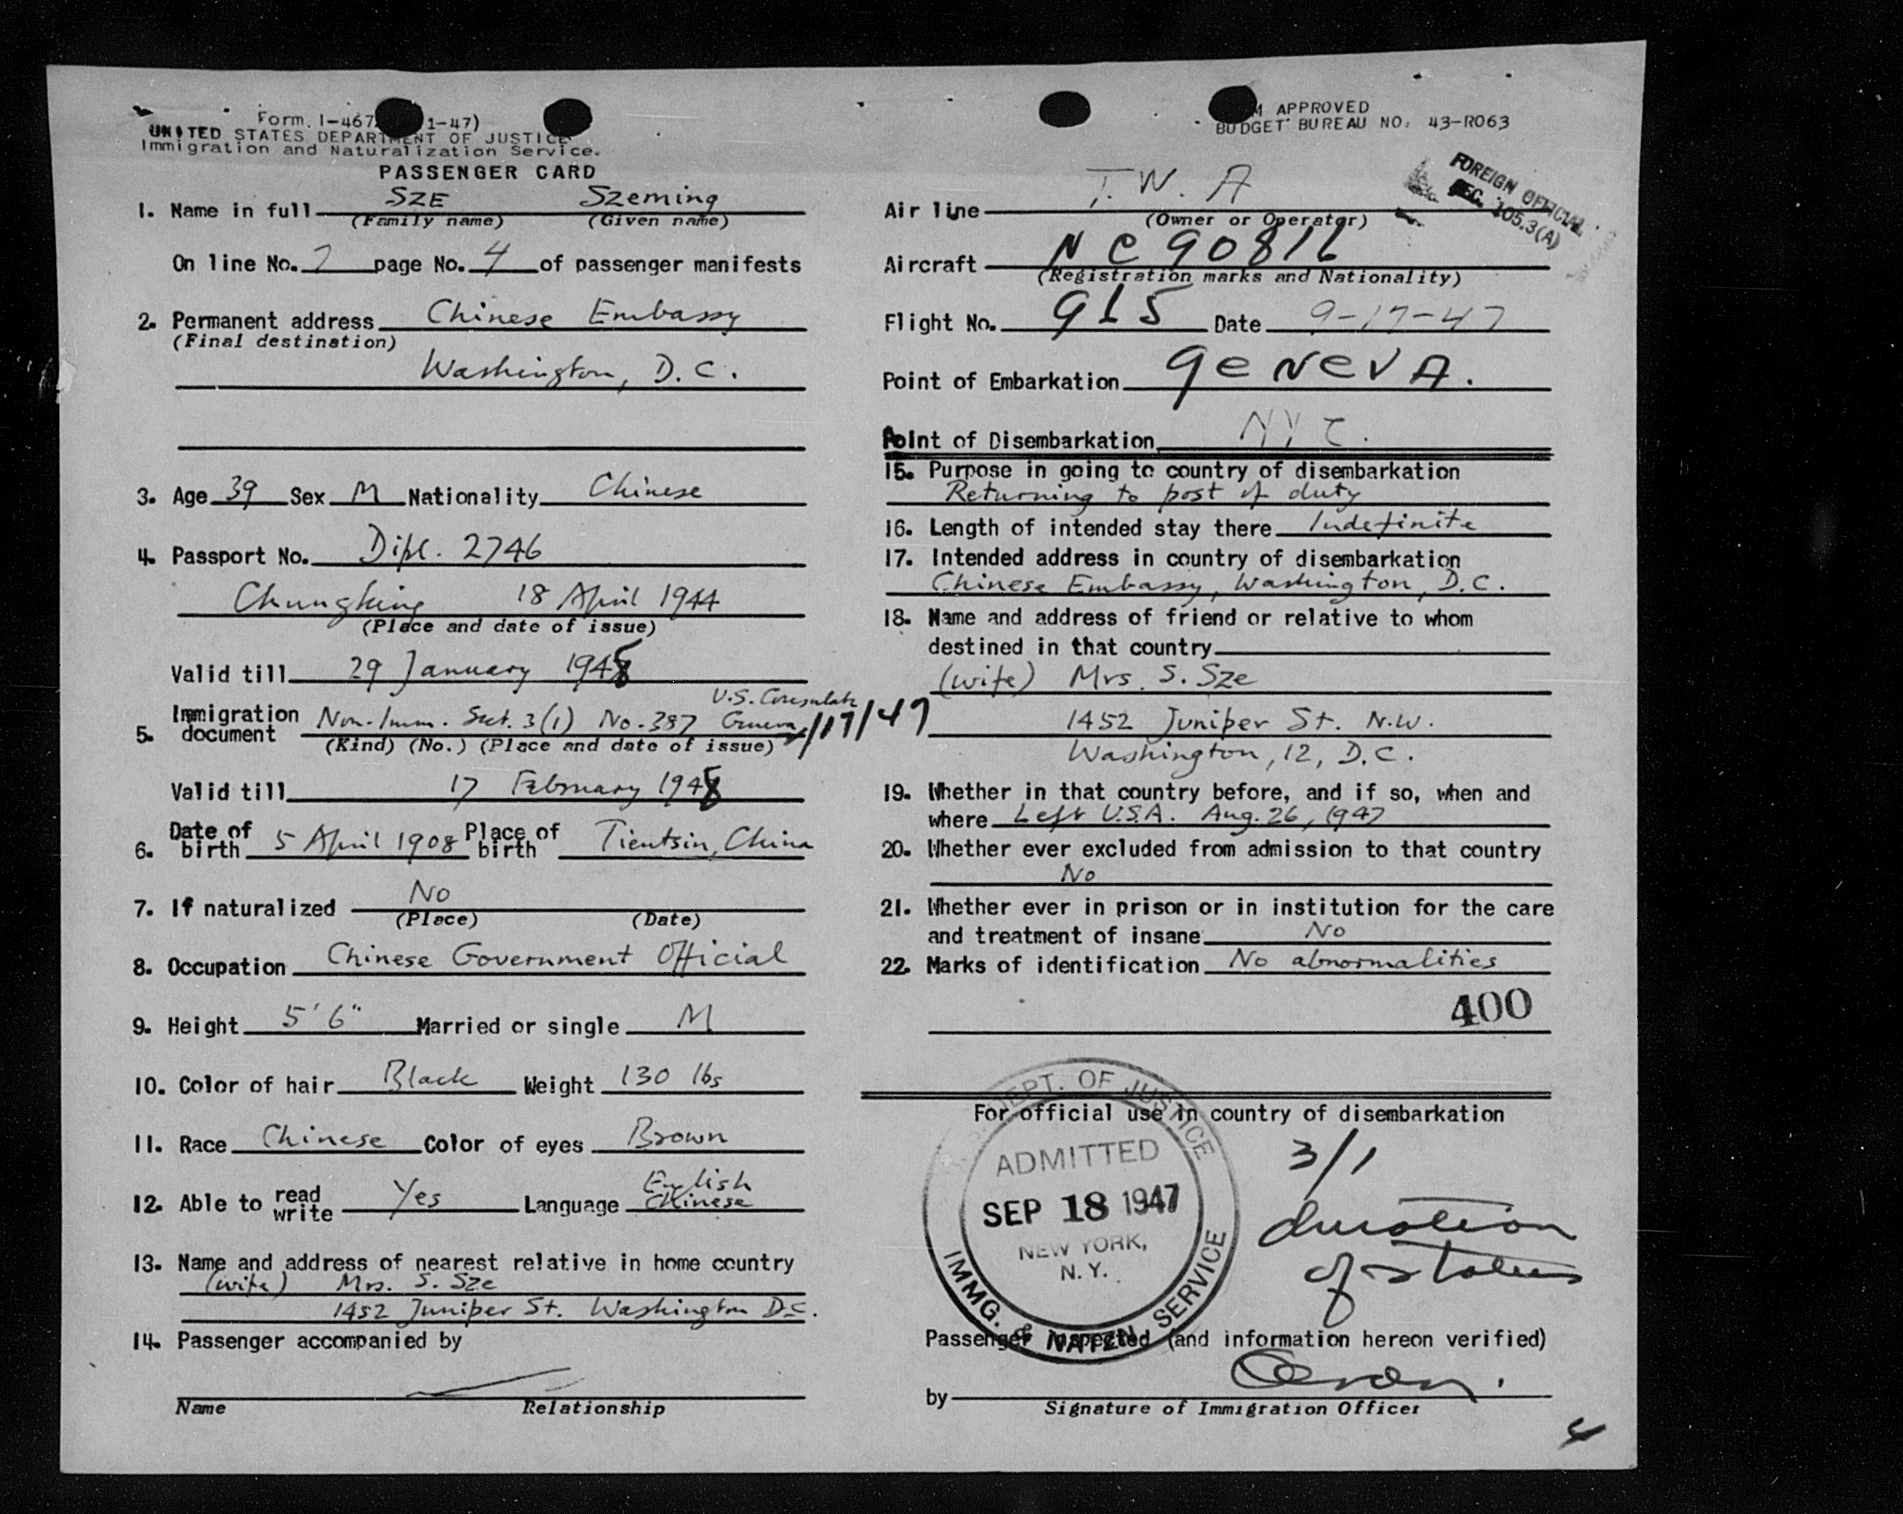 Form I-467 1-47)
UNITED STATES DEPARTMENT OF JUSTICE
Immigration and Naturalization Service.
PASSENGER CARD
1. Name in full SZE Szeming
(Family name) (Given name)
On line No. 7 page No. 4 of passenger manifests
2. Permanent address Chinese Embassy
(Final destination)
Washington, D.C.
3. Age 39 Sex M Nationality Chinese
4. Passport No. Dipl. 2746
Chungking 18 April 1944
(Place and date of issue)
Valid till 29 January 1948
U.S. Consulate
5. Immigration document Non-Imm. Sect. 3(1) No. 387 Geneva /17/47
(Kind) (No.) (Place and date of issue)
Valid till 17 February 1948
6. Date of birth 5 April 1908 Place of birth Tientsin, China
7. If naturalized No
(Place) (Date)
8. Occupation Chinese Government Official
9. Height 5'6" Married or single M
10. Color of hair Black Weight 130 lbs
11. Race Chinese Color of eyes Brown
12. Able to read write Yes Language English Chinese
13. Name and address of nearest relative in home country
(wife) Mrs. S. Sze
1452 Juniper St. Washington D.C.
14. Passenger accompanied by
Name Relationship
M APPROVED
BUDGET BUREAU NO. 43-R063
FOREIGN OFFICIAL
SEC. 105.3(A)
Air line T.W.A
(Owner or Operator)
Aircraft NC90816
(Registration marks and Nationality)
Flight No. 915 Date 9-17-47
Point of Embarkation GENEVA.
Point of Disembarkation NYC.
15. Purpose in going to country of disembarkation
Returning to post of duty
16. Length of intended stay there Indefinite
17. Intended address in country of disembarkation
Chinese Embassy, Washington, D.C.
18. Name and address of friend or relative to whom
destined in that country
(wife) Mrs. S. Sze
1452 Juniper St. N.W.
Washington, 12, D.C.
19. Whether in that country before, and if so, when and
where Left U.S.A. Aug. 26, 1947
20. Whether ever excluded from admission to that country
No
21. Whether ever in prison or in institution for the care
and treatment of insane No
22. Marks of identification No abnormalities
400
For official use in country of disembarkation
DEPT. OF JUSTICE
ADMITTED
SEP 18 1947
NEW YORK,
N.Y.
IMMG. & NATZN. SERVICE
3/1
duration
of status
Passenger inspected (and information hereon verified)
by
Signature of Immigration Officer
4